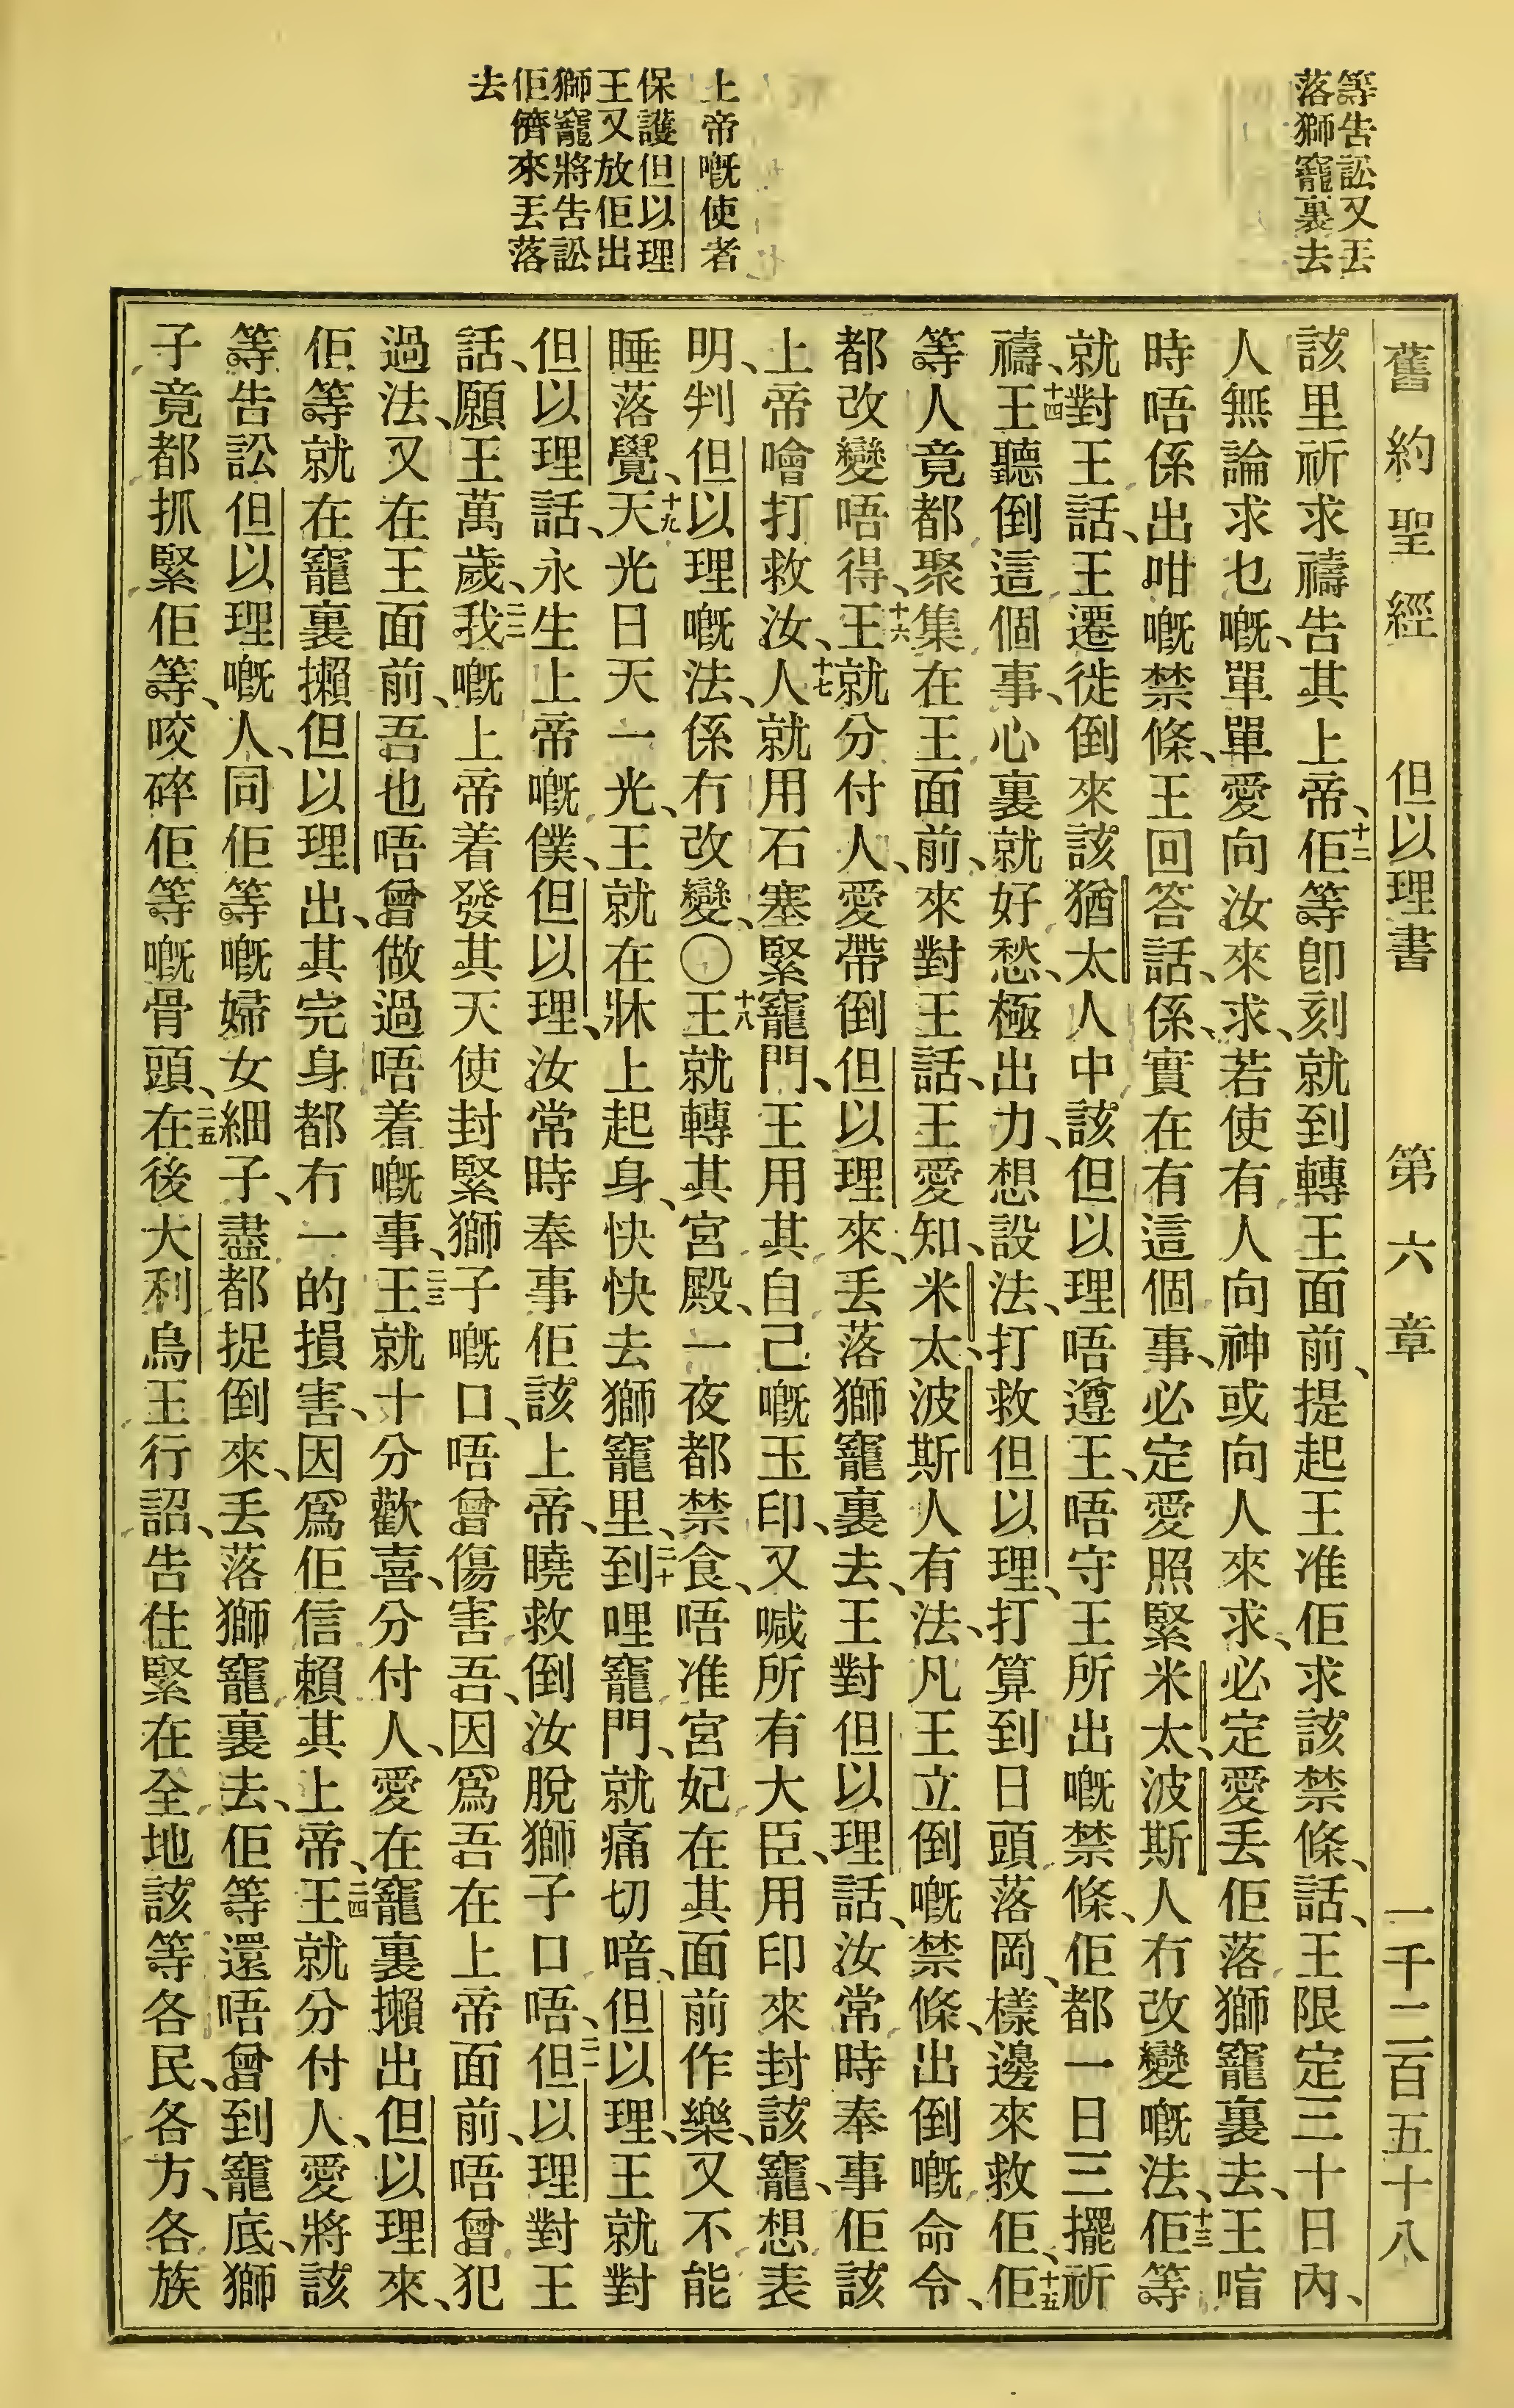 等告訟又丟
落獅竉裏去
上帝嘅使者
保護但以理
王又放佢出
獅竉將告訟
佢儕來丟落
去
舊約聖經 但以理書 第六章 一千二百五十八
該里祈求禱告其上帝、十二佢等卽刻就到轉王面前、提起王准佢求該禁條、話、王限定三十日內、
人無論求乜嘅、單單愛向汝來求、若使有人向神或向人來求、必定愛丟佢落獅竉裏去、王喑
時唔係出咁嘅禁條、王回答話、係、實在有這個事、必定愛照緊米太、波斯人冇改變嘅法、十三佢等
就對王話、王遷徙倒來該猶太人中該但以理唔遵王、唔守王所出嘅禁條、佢都一日三擺祈
禱、十四王聽倒這個事、心裏就好愁、極出力、想設法、打救但以理、打算到日頭落岡、樣邊來救佢、十五佢
等人竟都聚集在王面前、來對王話、王愛知、米太、波斯人有法、凡王立倒嘅禁條、出倒嘅命令、
都改變唔得、十六王就分付人、愛帶倒但以理來、丟落獅竉裏去、王對但以理話、汝常時奉事佢該
上帝噲打救汝、十七人就用石塞緊竉門、王用其自己嘅玉印、又喊所有大臣、用印來封該竉、想表
明、判但以理嘅法、係冇改變、〇十八王就轉其宮殿、一夜都禁食、唔准宮妃在其面前作樂、又不能
睡落覺、十九天光日天一光、王就在牀上起身、快快去獅竉里、二十到哩竉門、就痛切喑、但以理、王就對
但以理話、永生上帝嘅僕、但以理、汝常時奉事佢該上帝、曉救倒汝脫獅子口唔、二一但以理對王
話、願王萬歲、二二我嘅上帝着發其天使封緊獅子嘅口、唔曾傷害吾、因爲吾在上帝面前、唔曾犯
過法、又在王面前、吾也唔曾做過唔着嘅事、二三王就十分歡喜、分付人、愛在竉裏攋出但以理來、
佢等就在竉裏攋但以理出、其完身都冇一的損害、因爲佢信賴其上帝、二四王就分付人、愛將該
等告訟但以理嘅人、同佢等嘅婦女細子、盡都捉倒來、丟落獅竉裏去、佢等還唔曾到竉底、獅
子竟都抓緊佢等、咬碎佢等嘅骨頭、二五在後大利烏王行詔、告住緊在全地該等各民、各方、各族